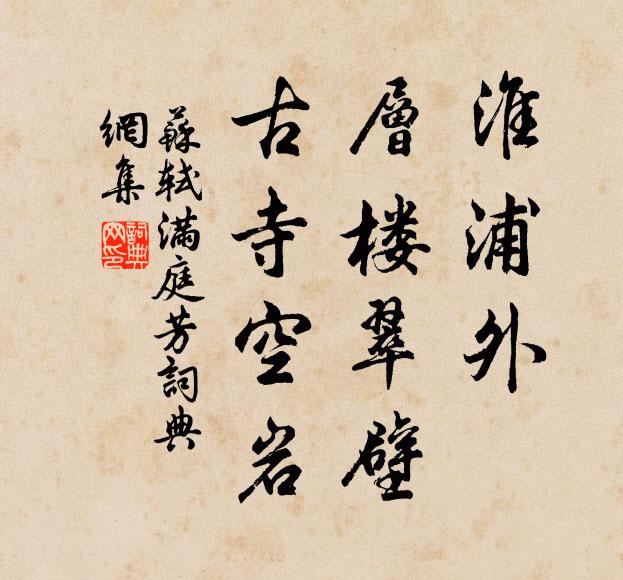 淮浦外
層楼翠壁
古寺空岩
蘇軾滿庭芳詞典
網集
詞典
网印